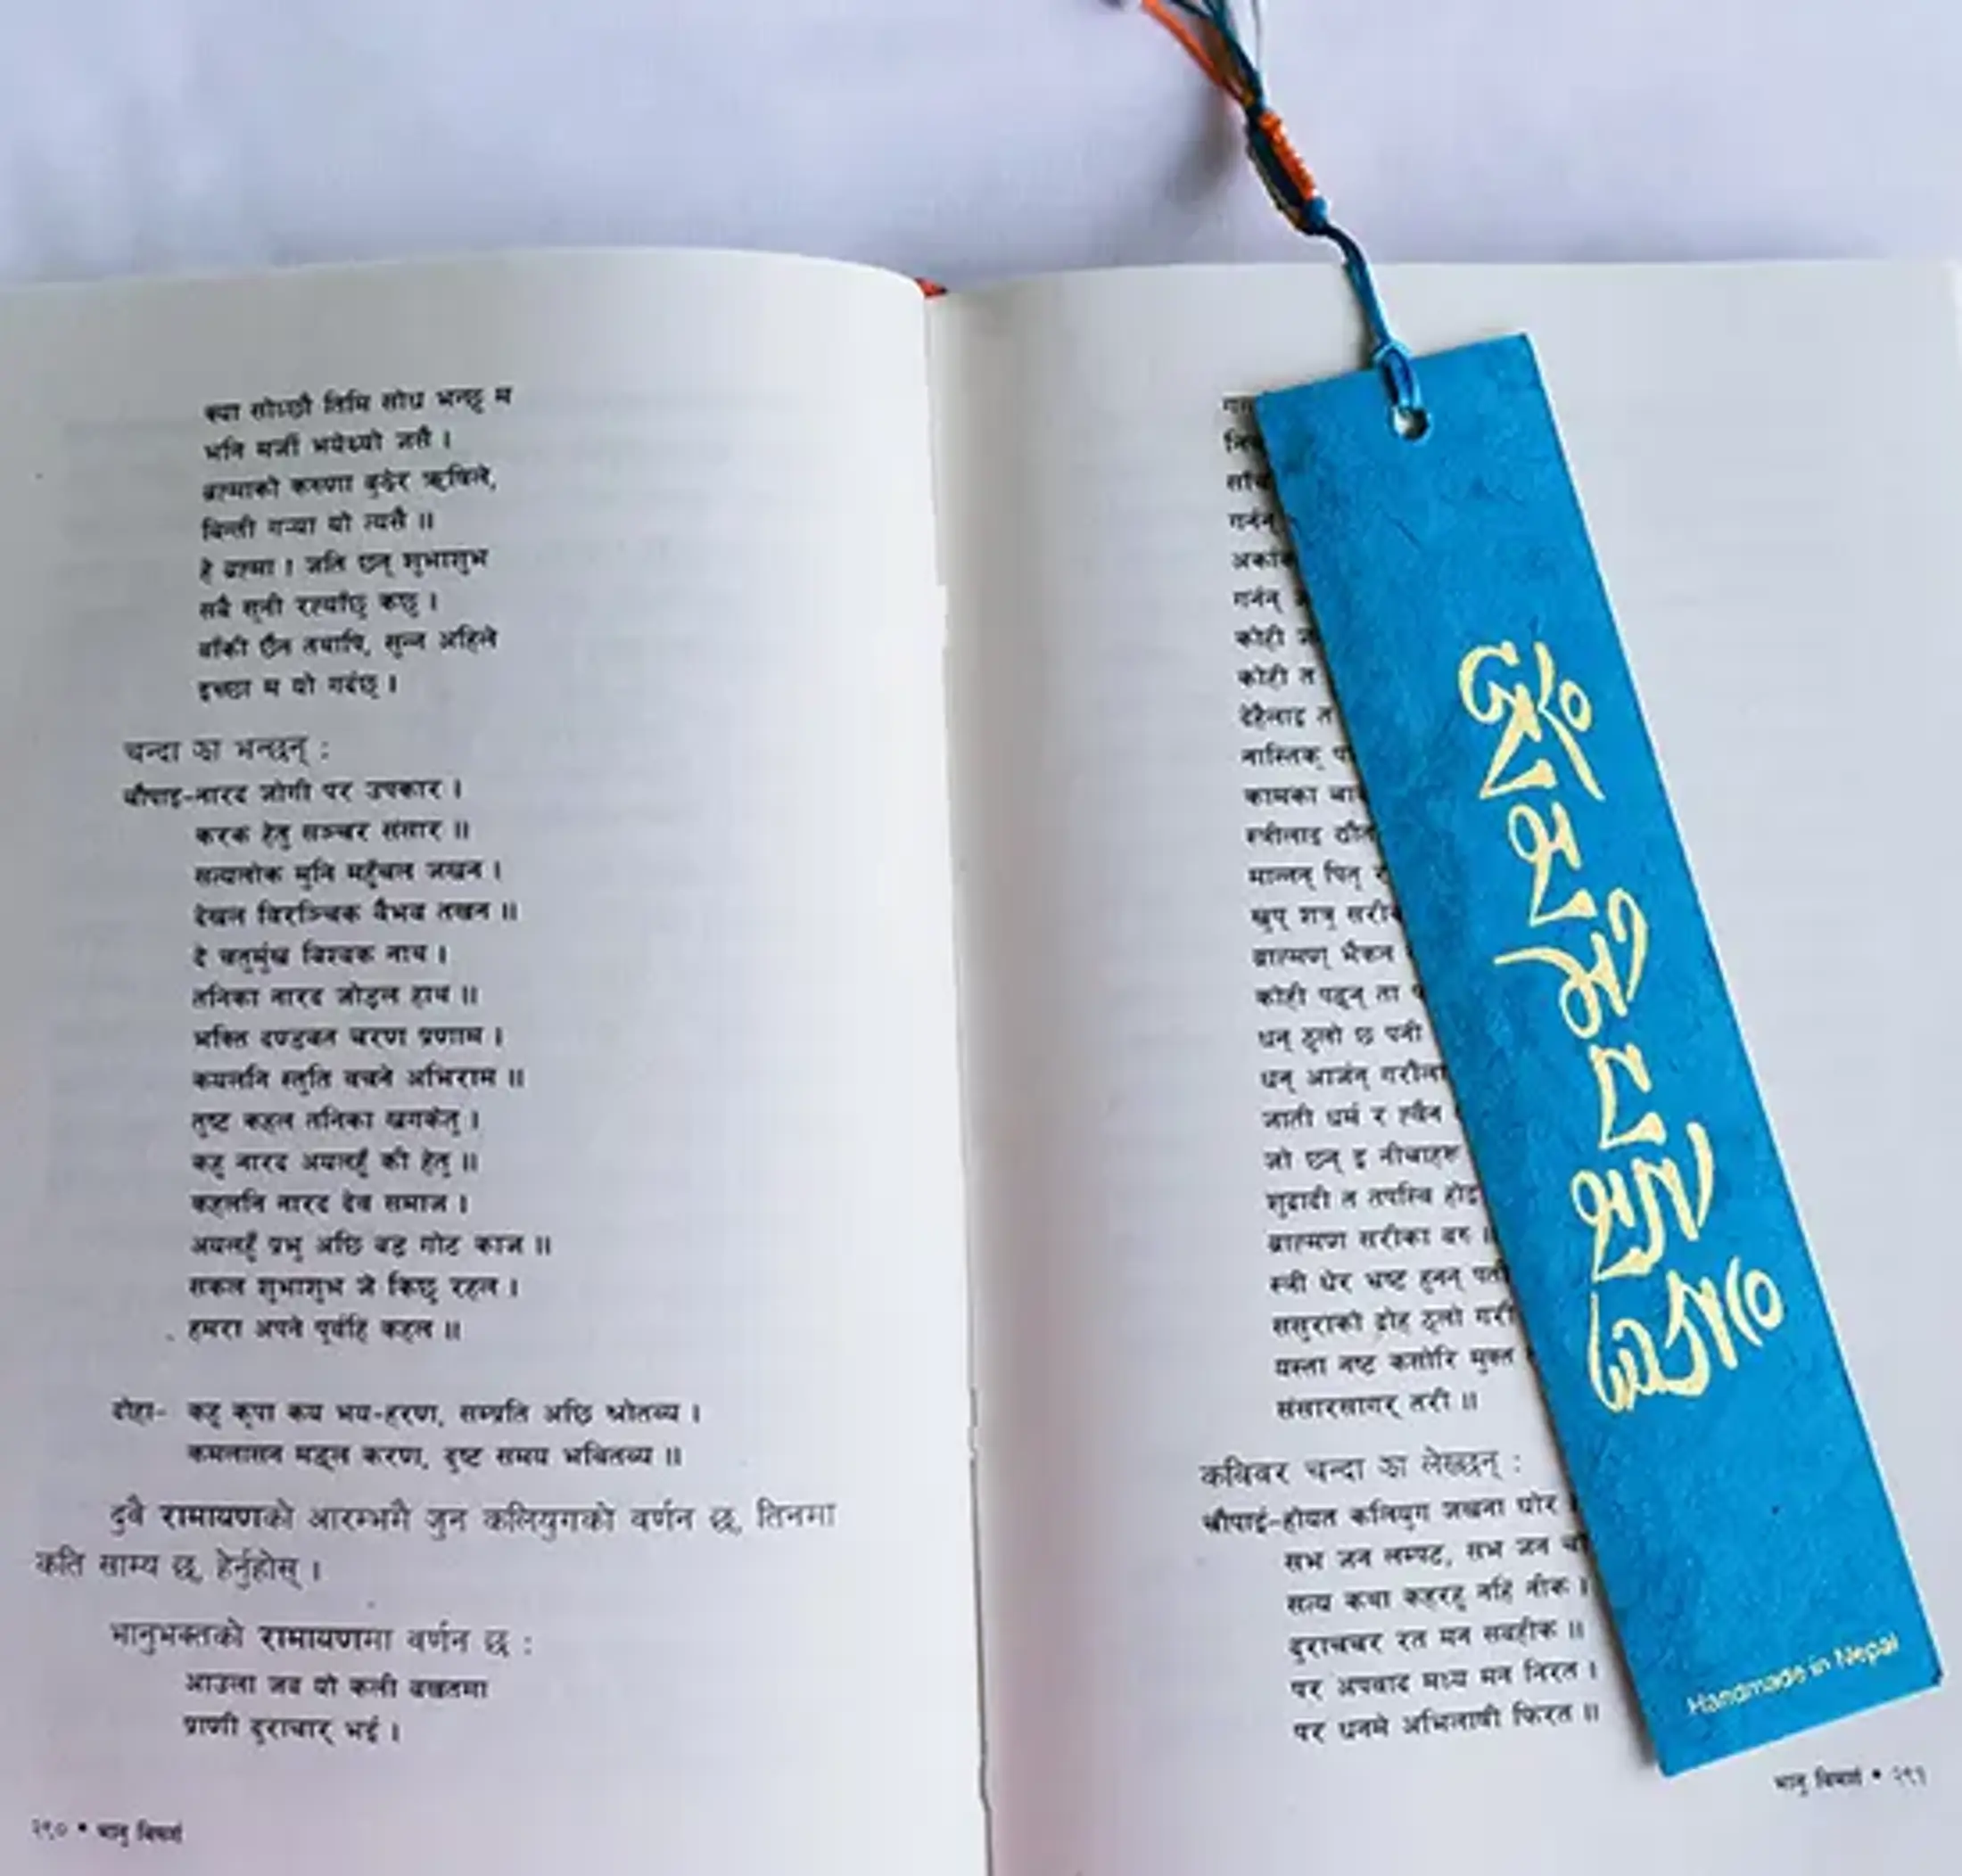 क्या सोध्छौ तिमि सोध भन्छु म
भनि मर्जी भयेथ्यो जसै ।
ब्रह्माको करुणा बुझेर ऋषिले,
बिन्ती गऱ्या यो त्यसै ॥
हे ब्रह्मा । जति छन् शुभाशुभ
सबै सूनी रह्याँछु कछु ।
बाँकी छैन तथापि, सुन्न अहिले
इच्छा म यो गर्दछु ।
चन्दा झा भन्छन् :
चौपाइ-नारद जोगी पर उपकार ।
करक हेतु सञ्चर संसार ॥
सत्यलोक मुनि महुँचल जखन ।
देखल विरञ्चिक वैभव तखन ॥
दे चतुर्मुख विश्वक नाथ ।
तनिका नारद जोड़ल हाथ ॥
भक्ति दण्डवत चरण प्रणाम ।
कयलनि स्तुति वचने अभिराम ॥
तुष्ट कहल तनिका खगकेतु ।
कहु नारद अयलहुँ की हेतु ॥
कहलनि नारद देव समाज ।
अयलहुँ प्रभु अछि बड़ गोट काज ॥
सकल शुभाशुभ जे किछु रहल ।
हमरा अपने पूर्वहि कहल ॥
दोहा- कहु कृपा कय भय-हरण, सम्प्रति अछि श्रोतव्य ।
कमलासन मङ्गल करण, दुष्ट समय भवितव्य ॥
दुवै रामायणको आरम्भमै जुन कलियुगको वर्णन छ, तिनमा
कति साम्य छ, हेर्नुहोस् ।
भानुभक्तको रामायणमा वर्णन छ :
आउला जब यो कली बखतमा
प्राणी दुराचार् भई ।
२९० • भानु विमर्श
गर्नन्
गर्नन्
कोही
कोही त
देहैलाइ त
नास्तिक्
कामका
स्त्रीलाइ
मान्नन् पितृ
खुप् शत्रु
ब्राह्मण् भैकन
कोही पढ्न् ता
धन् ठुलो छ पनी
धन् आर्जन् गरौंला
जाती धर्म र
जो छन् इ नीचाहरू
शुद्रादी त तपस्वि
ब्राह्मण सरीका वरु ॥
स्त्री धेर भ्रष्ट हुनन्
ससुराको द्रोह ठुलो
यस्ता नष्ट कसोरि मुक्त
संसारसागर् तरी ॥
कविवर चन्दा झा लेख्छन् :
चौपाई-होयत कलियुग जखना घोर
सभ जन लम्पट, सभ जन
सत्य कथा कहरहु नहि नीक ।
दुराचचर रत मन सबहीक ॥
पर अपवाद मध्य मन निरत ।
पर धनमे अभिलाषी फिरत ॥
भानु विमर्श • २९१
ॐ मणिपद्मे हूँ
Handmade in Nepal